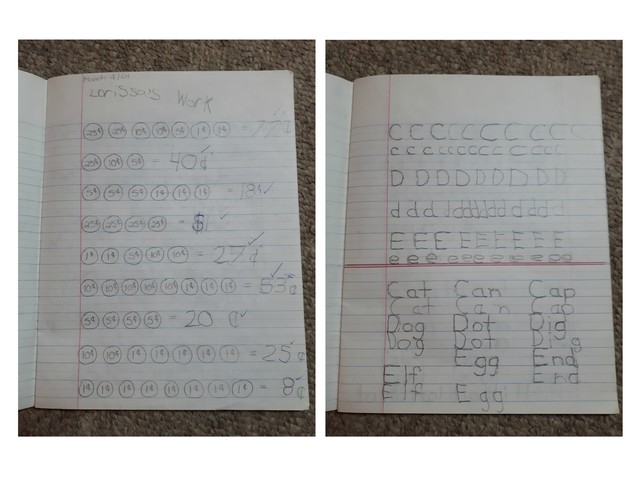 March 4/01
Larissa's Work
25¢ 25¢ 10¢ 10¢ 5¢ 1¢ 1¢ = 77¢
25¢ 10¢ 5¢ = 40¢
5¢ 5¢ 5¢ 1¢ 1¢ 1¢ = 18¢
25¢ 25¢ 25¢ 25¢ = $1
1¢ 1¢ 5¢ 10¢ 10¢ = 27¢
10¢ 10¢ 10¢ 10¢ 10¢ 1¢ 1¢ 1¢ = 53¢
5¢ 5¢ 5¢ 5¢ = 20 ¢
10¢ 10¢ 1¢ 1¢ 1¢ 1¢ 1¢ = 25¢
1¢ 1¢ 1¢ 1¢ 1¢ 1¢ 1¢ 1¢ = 8¢
C C C C C C C C C C C
c c c c c c c c c c c c
D D D D D D D D D D
d d d d d d d d d d d d
E E E E E E E E E
e e e e e e e e e e
Cat Can Cap
Cat Can Cap
Dog Dot Dig
Dog Dot Dig
Elf Egg End
Elf Egg End